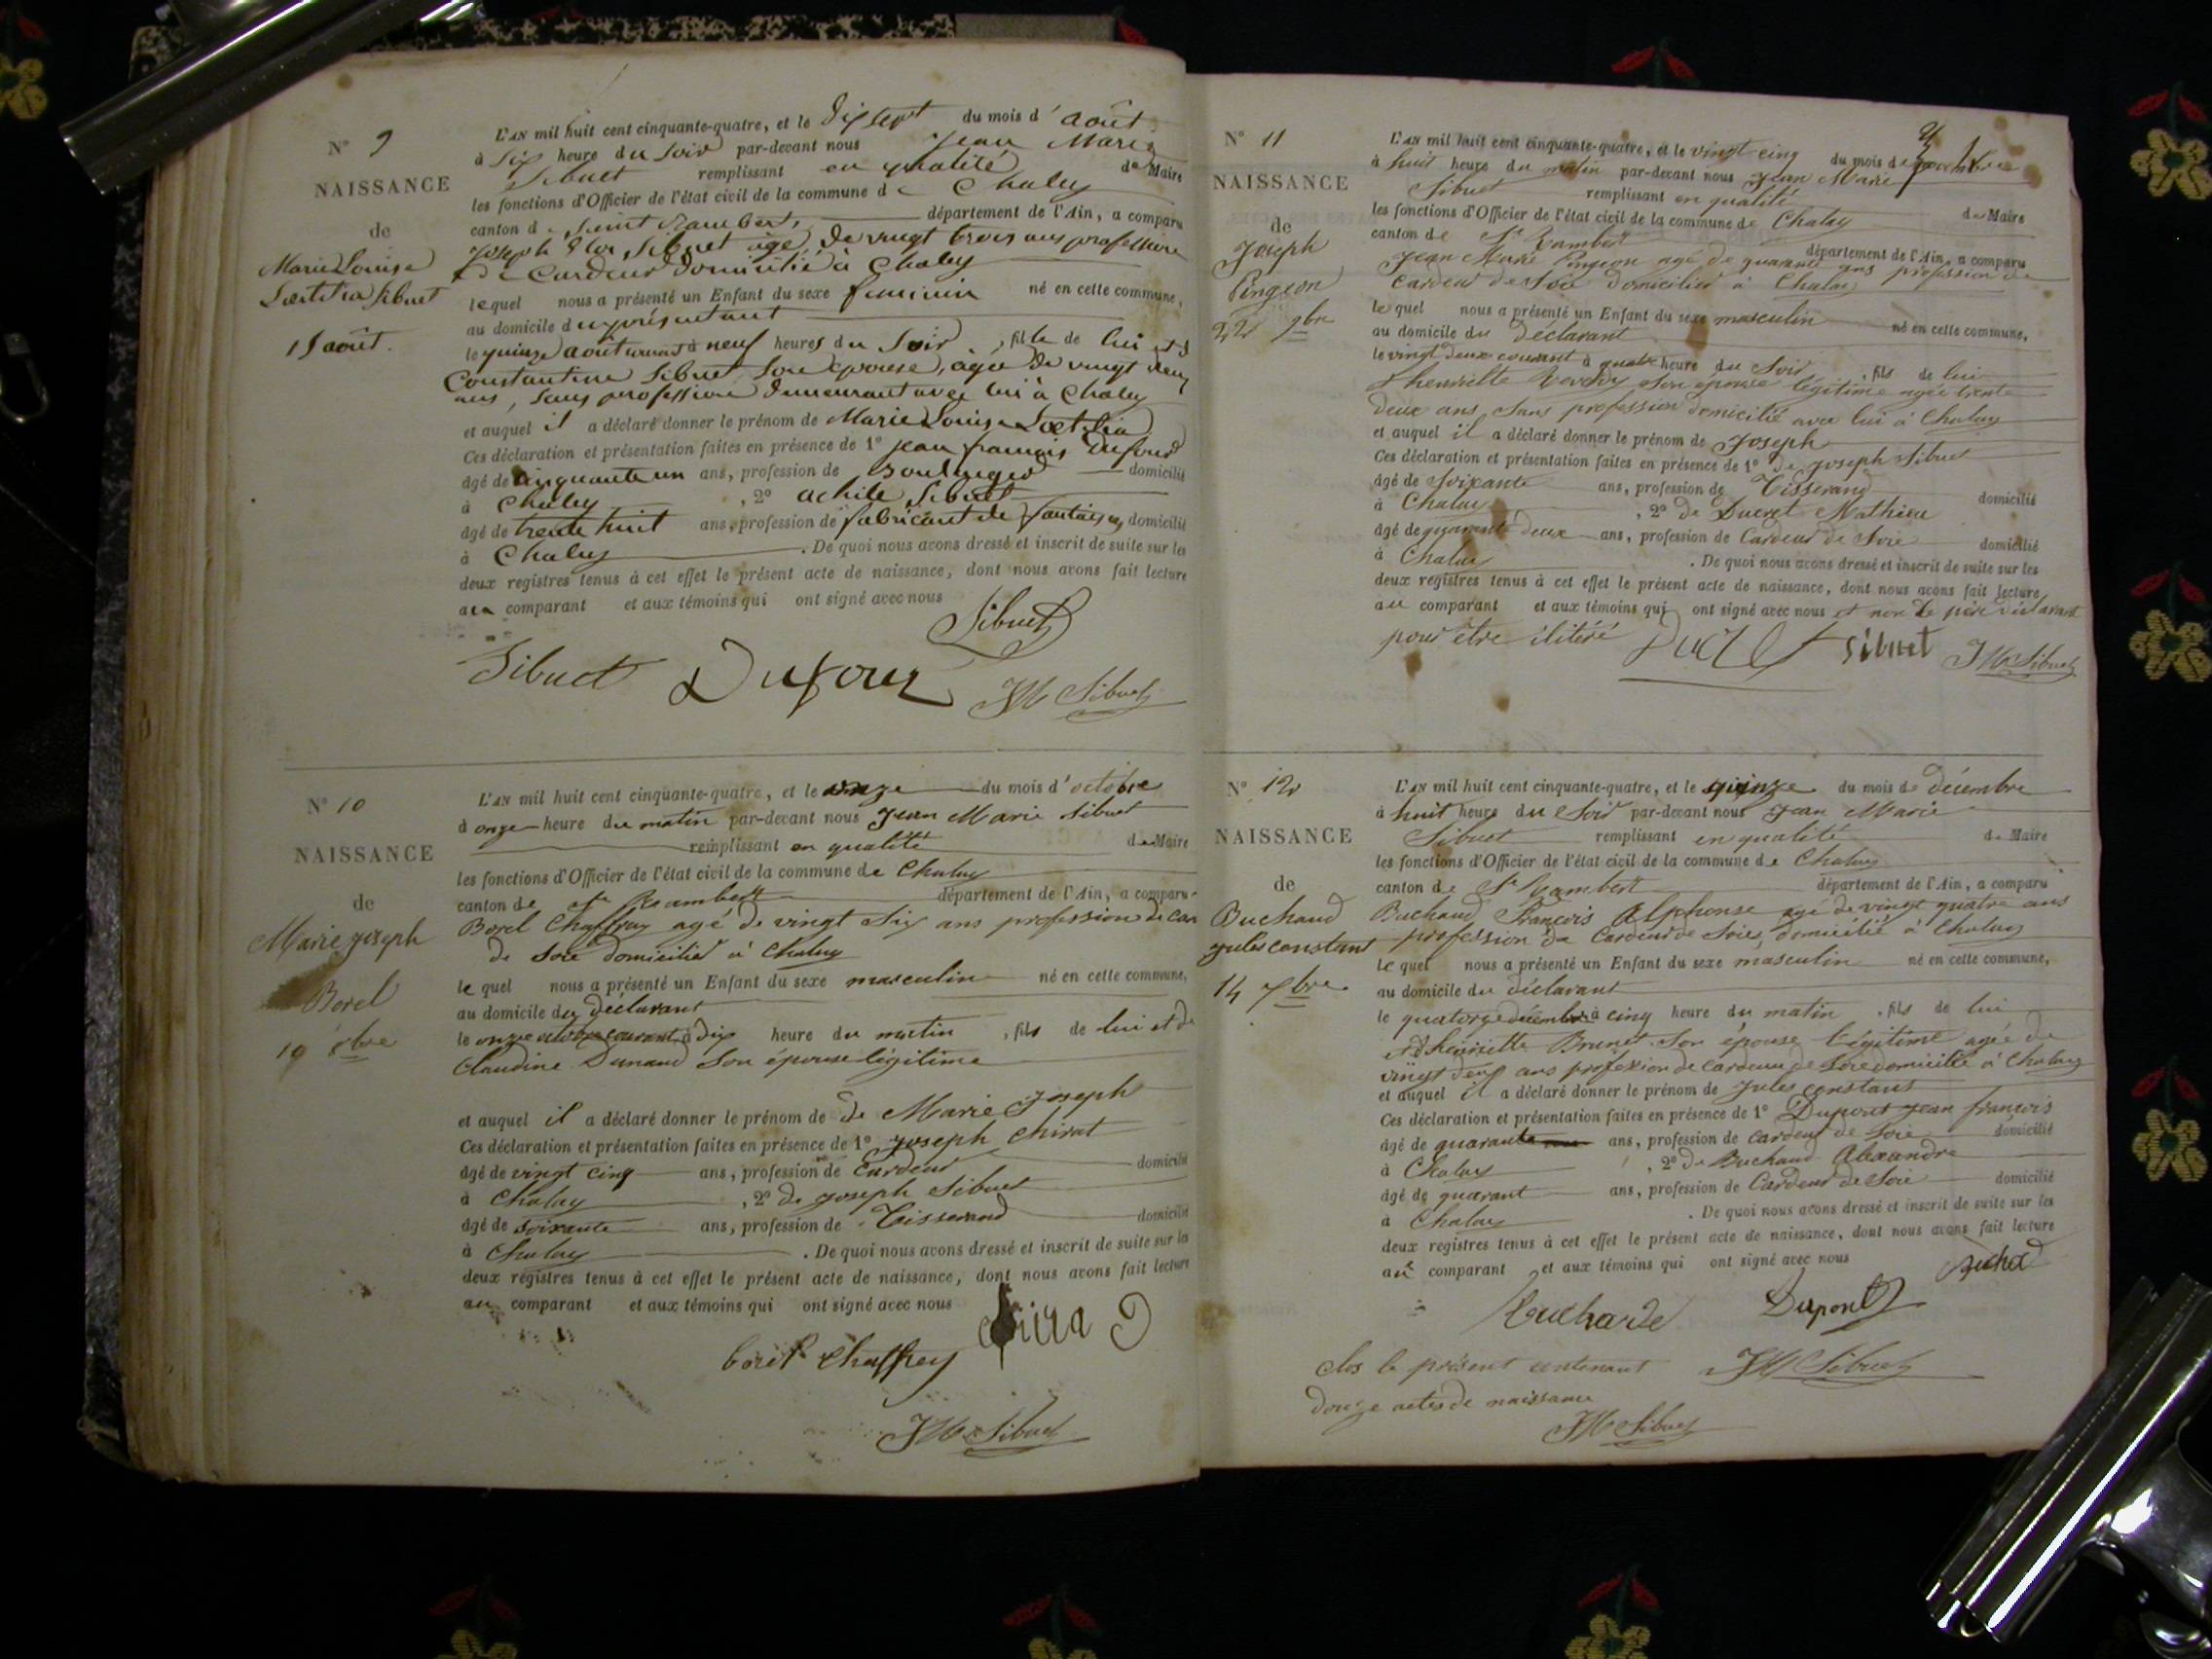 N° 9
NAISSANCE
de
Marie Louise
Lœtitia Sibuet
15 août.
L'AN mil huit cent cinquante-quatre, et le dix sept du mois d'août
à six heure du soir par-devant nous Jean Marie
Sibuet remplissant en qualité de Maire
les fonctions d'Officier de l'état civil de la commune de Chaley
canton de Saint Rambert, département de l'Ain, a comparu
Joseph Sibuet âgé de vingt trois ans profession
de Cardeur domicilié à Chaley
lequel nous a présenté un Enfant du sexe féminin né en cette commune,
au domicile du présentant
le quinze août courant à neuf heures du soir, fille de lui et d
Constantine Sibuet son épouse, âgée de vingt deux
ans, sans profession demeurant avec lui à Chaley
et auquel il a déclaré donner le prénom de Marie Louise Lœtitia
Ces déclaration et présentation faites en présence de 1° Jean françois Dufour
âgé de cinquante un ans, profession de Boulanger domicilié
à Chaley, 2° achile Sibuet
âgé de trente huit ans, profession de fabricant de fantaisies, domicilié
à Chaley. De quoi nous avons dressé et inscrit de suite sur les
deux registres tenus à cet effet le présent acte de naissance, dont nous avons fait lecture
au comparant et aux témoins qui ont signé avec nous
Sibuet
Sibuet Dufour JM Sibuet
N° 10
NAISSANCE
de
Marie joseph
Borel
19 8bre
L'AN mil huit cent cinquante-quatre, et le onze du mois d'octobre
à onze heure du matin par-devant nous Jean Marie Sibuet
remplissant en qualité de Maire
les fonctions d'Officier de l'état civil de la commune de Chaley
canton de St Rambert département de l'Ain, a comparu
Borel Chaffrey agé de vingt Six ans profession de car
de Soie domicilié à Chaley
le quel nous a présenté un Enfant du sexe masculin né en cette commune,
au domicile du déclarant
le onze octobre courant, à dix heure du matin, fils de lui et de
Claudine Dunand Son épouse légitime
et auquel il a déclaré donner le prénom de de Marie Joseph
Ces déclaration et présentation faites en présence de 1° joseph Chirat
âgé de vingt cinq ans, profession de Cardeur domicilié
à Chaley, 2° de Joseph Sibuet
âgé de soixante ans, profession de Tisserand domicilié
à Chaley. De quoi nous avons dressé et inscrit de suite sur les
deux registres tenus à cet effet le présent acte de naissance, dont nous avons fait lecture
au comparant et aux témoins qui ont signé avec nous
borel Chaffrey
JM Sibuet
N° 11
NAISSANCE
de
Joseph
Pingeon
22 9bre
L'AN mil huit cent cinquante-quatre, et le vingt cinq du mois de novembre
à huit heure du matin par-devant nous Jean Marie
Sibuet remplissant en qualité de Maire
les fonctions d'Officier de l'état civil de la commune de Chaley
canton de St Rambert département de l'Ain, a comparu
Jean Marie Pingeon agé de quarante ans profession de
Cardeur de Soie domicilié à Chaley
le quel nous a présenté un Enfant du sexe masculin né en cette commune,
au domicile du déclarant
le vingt deux courant à quatre heure du Soir, fils de lui
henriette son épouse légitime agée trente
deux ans, Sans profession domicilié avec lui à Chaley
et auquel il a déclaré donner le prénom de Joseph
Ces déclaration et présentation faites en présence de 1° de joseph Sibuet
âgé de Soixante ans, profession de Tisserand domicilié
à Chaley, 2° de Ducret Mathieu
âgé de quarante deux ans, profession de Cardeur de Soie domicilié
à Chaley. De quoi nous avons dressé et inscrit de suite sur les
deux registres tenus à cet effet le présent acte de naissance, dont nous avons fait lecture
au comparant et aux témoins qui ont signé avec nous et non le père déclarant
pour être iliteré Sibuet JM Sibuet
N° 12
NAISSANCE
de
Buchaud
jules constant
14 Xbre
L'AN mil huit cent cinquante-quatre, et le quinze du mois de décembre
à huit heure du Soir par-devant nous Jean Marie
Sibuet remplissant en qualité de Maire
les fonctions d'Officier de l'état civil de la commune de Chaley
canton de St Rambert département de l'Ain, a comparu
Buchaud François Alphonse agé de vingt quatre ans
profession de Cardeur de Soie, domicilié à Chaley
le quel nous a présenté un Enfant du sexe masculin né en cette commune,
au domicile du déclarant
le quatorze décembre à cinq heure du matin, fils de lui
et d'henriette Brunet Son épouse légitime agée de
vingt deux ans profession de Cardeuse de Soie domicilié à Chaley
et auquel il a déclaré donner le prénom de Jules constant
Ces déclaration et présentation faites en présence de 1° Dupont jean françois
âgé de quarante ans, profession de Cardeur de Soie domicilié
à Chaley, 2° de Buchaud Alexandre
âgé de quarant ans, profession de Cardeur de Soie domicilié
à Chaley. De quoi nous avons dressé et inscrit de suite sur les
deux registres tenus à cet effet le présent acte de naissance, dont nous avons fait lecture
au comparant et aux témoins qui ont signé avec nous
Dupont
clos le présent contenant JM Sibuet
douze actes de naissance
JM Sibuet